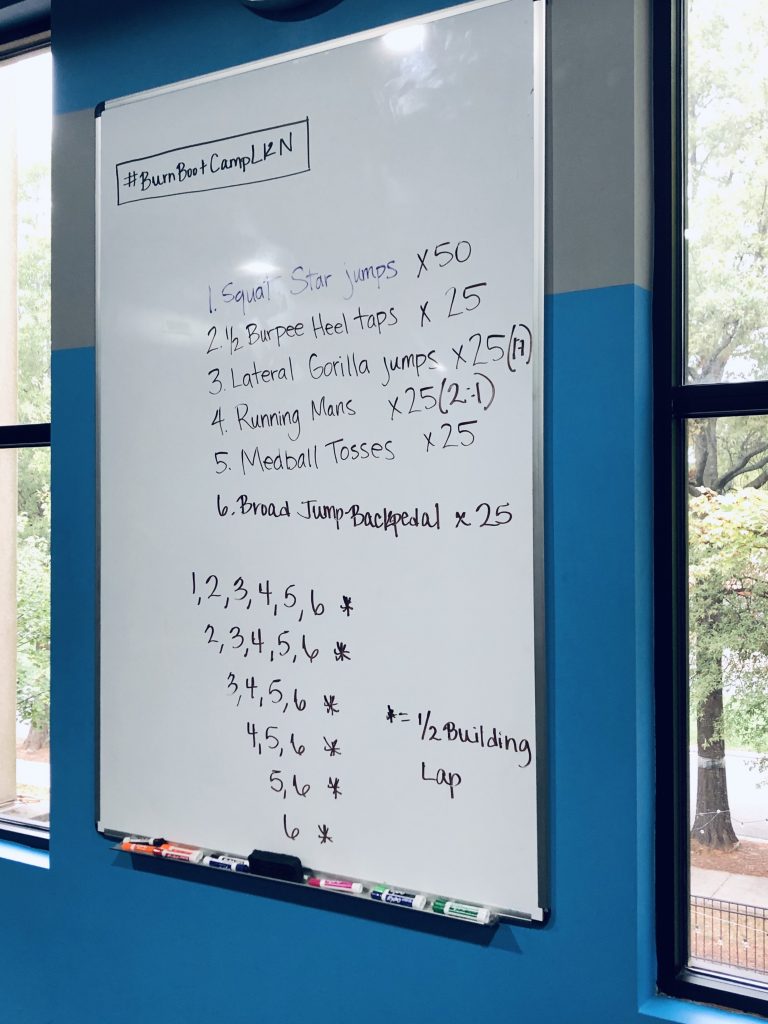 #BurnBootCampLKN
1. Squat Star jumps x50
2. 1/2 Burpee Heel taps x 25
3. Lateral Gorilla jumps x25(17)
4. Running Mans x25(2:1)
5. Medball Tosses x25
6. Broad Jump-Backpedal x 25
1,2,3,4,5,6 *
2,3,4,5,6 *
3,4,5,6 *
4,5,6 *
5,6 *
6 *
*= 1/2 Building
Lap